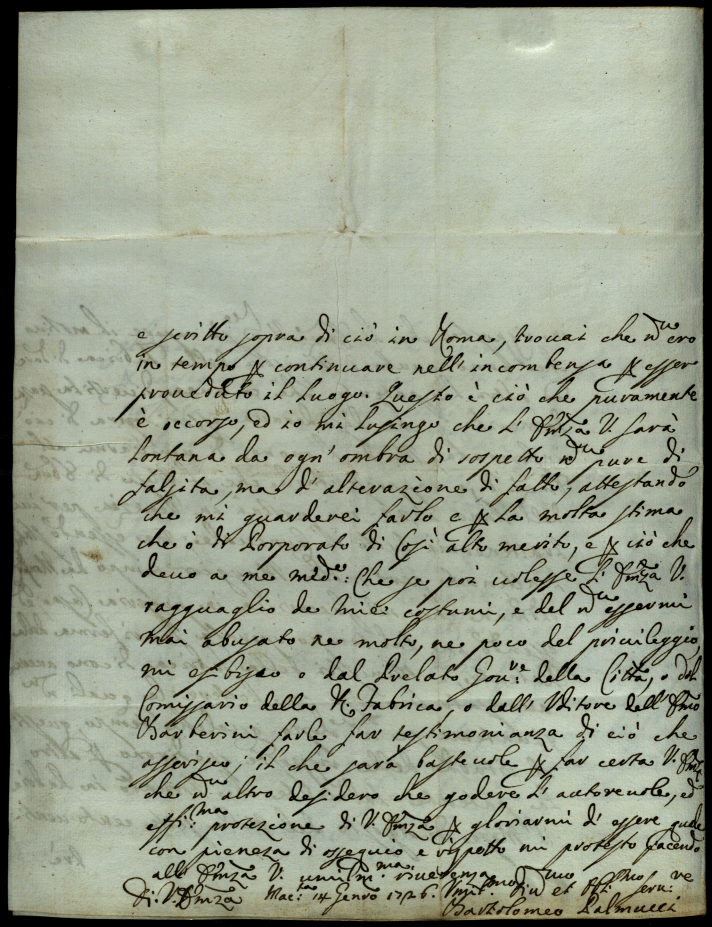 e scritto sopra di ciò in Roma, trovai che nū ero
in tempo p continuare nell'incombenza p esser
proveduto il luogo. Questo è ciò che puramente
è occorso, ed io mi lusingo che l'Em̃za V. sarà
lontana da ogn'ombra di sospetto nū pure di
falsita, ma d'alterazione di fatto, attestando
che mi guarderei farlo e p la molta stima
che ò di Porporato di così alto merito, e p ciò che
devo a me med.º: Che se poi volesse l'Em̃za V.
ragguaglio de miei costumi, e del nū essermi
mai abusato ne molto, ne poco del privileggio,
mi esibisco o dal Prelato Gov.ve della Città, o dal
Comissario della R. Fabrica, o dall'Uditore dell'Em̃o
Barberini farle far testimonianza di ciò che
asserisco; il che sarà bastevole p far certa V. Em̃za
che nū altro desidero che godere l'autorevole, ed
effi.ma protezione di V. Em̃za p gloriarmi d'essere quale
con pienezza di osseguio e rispetto mi protesto facendo
all'Em̃za V. umil.ma riverenza
Di V. Em̃za Mac.ta 14 Genro 1726. Umil.mo Div et Obl.mo Serv.ve
Bartolomeo Palmucci